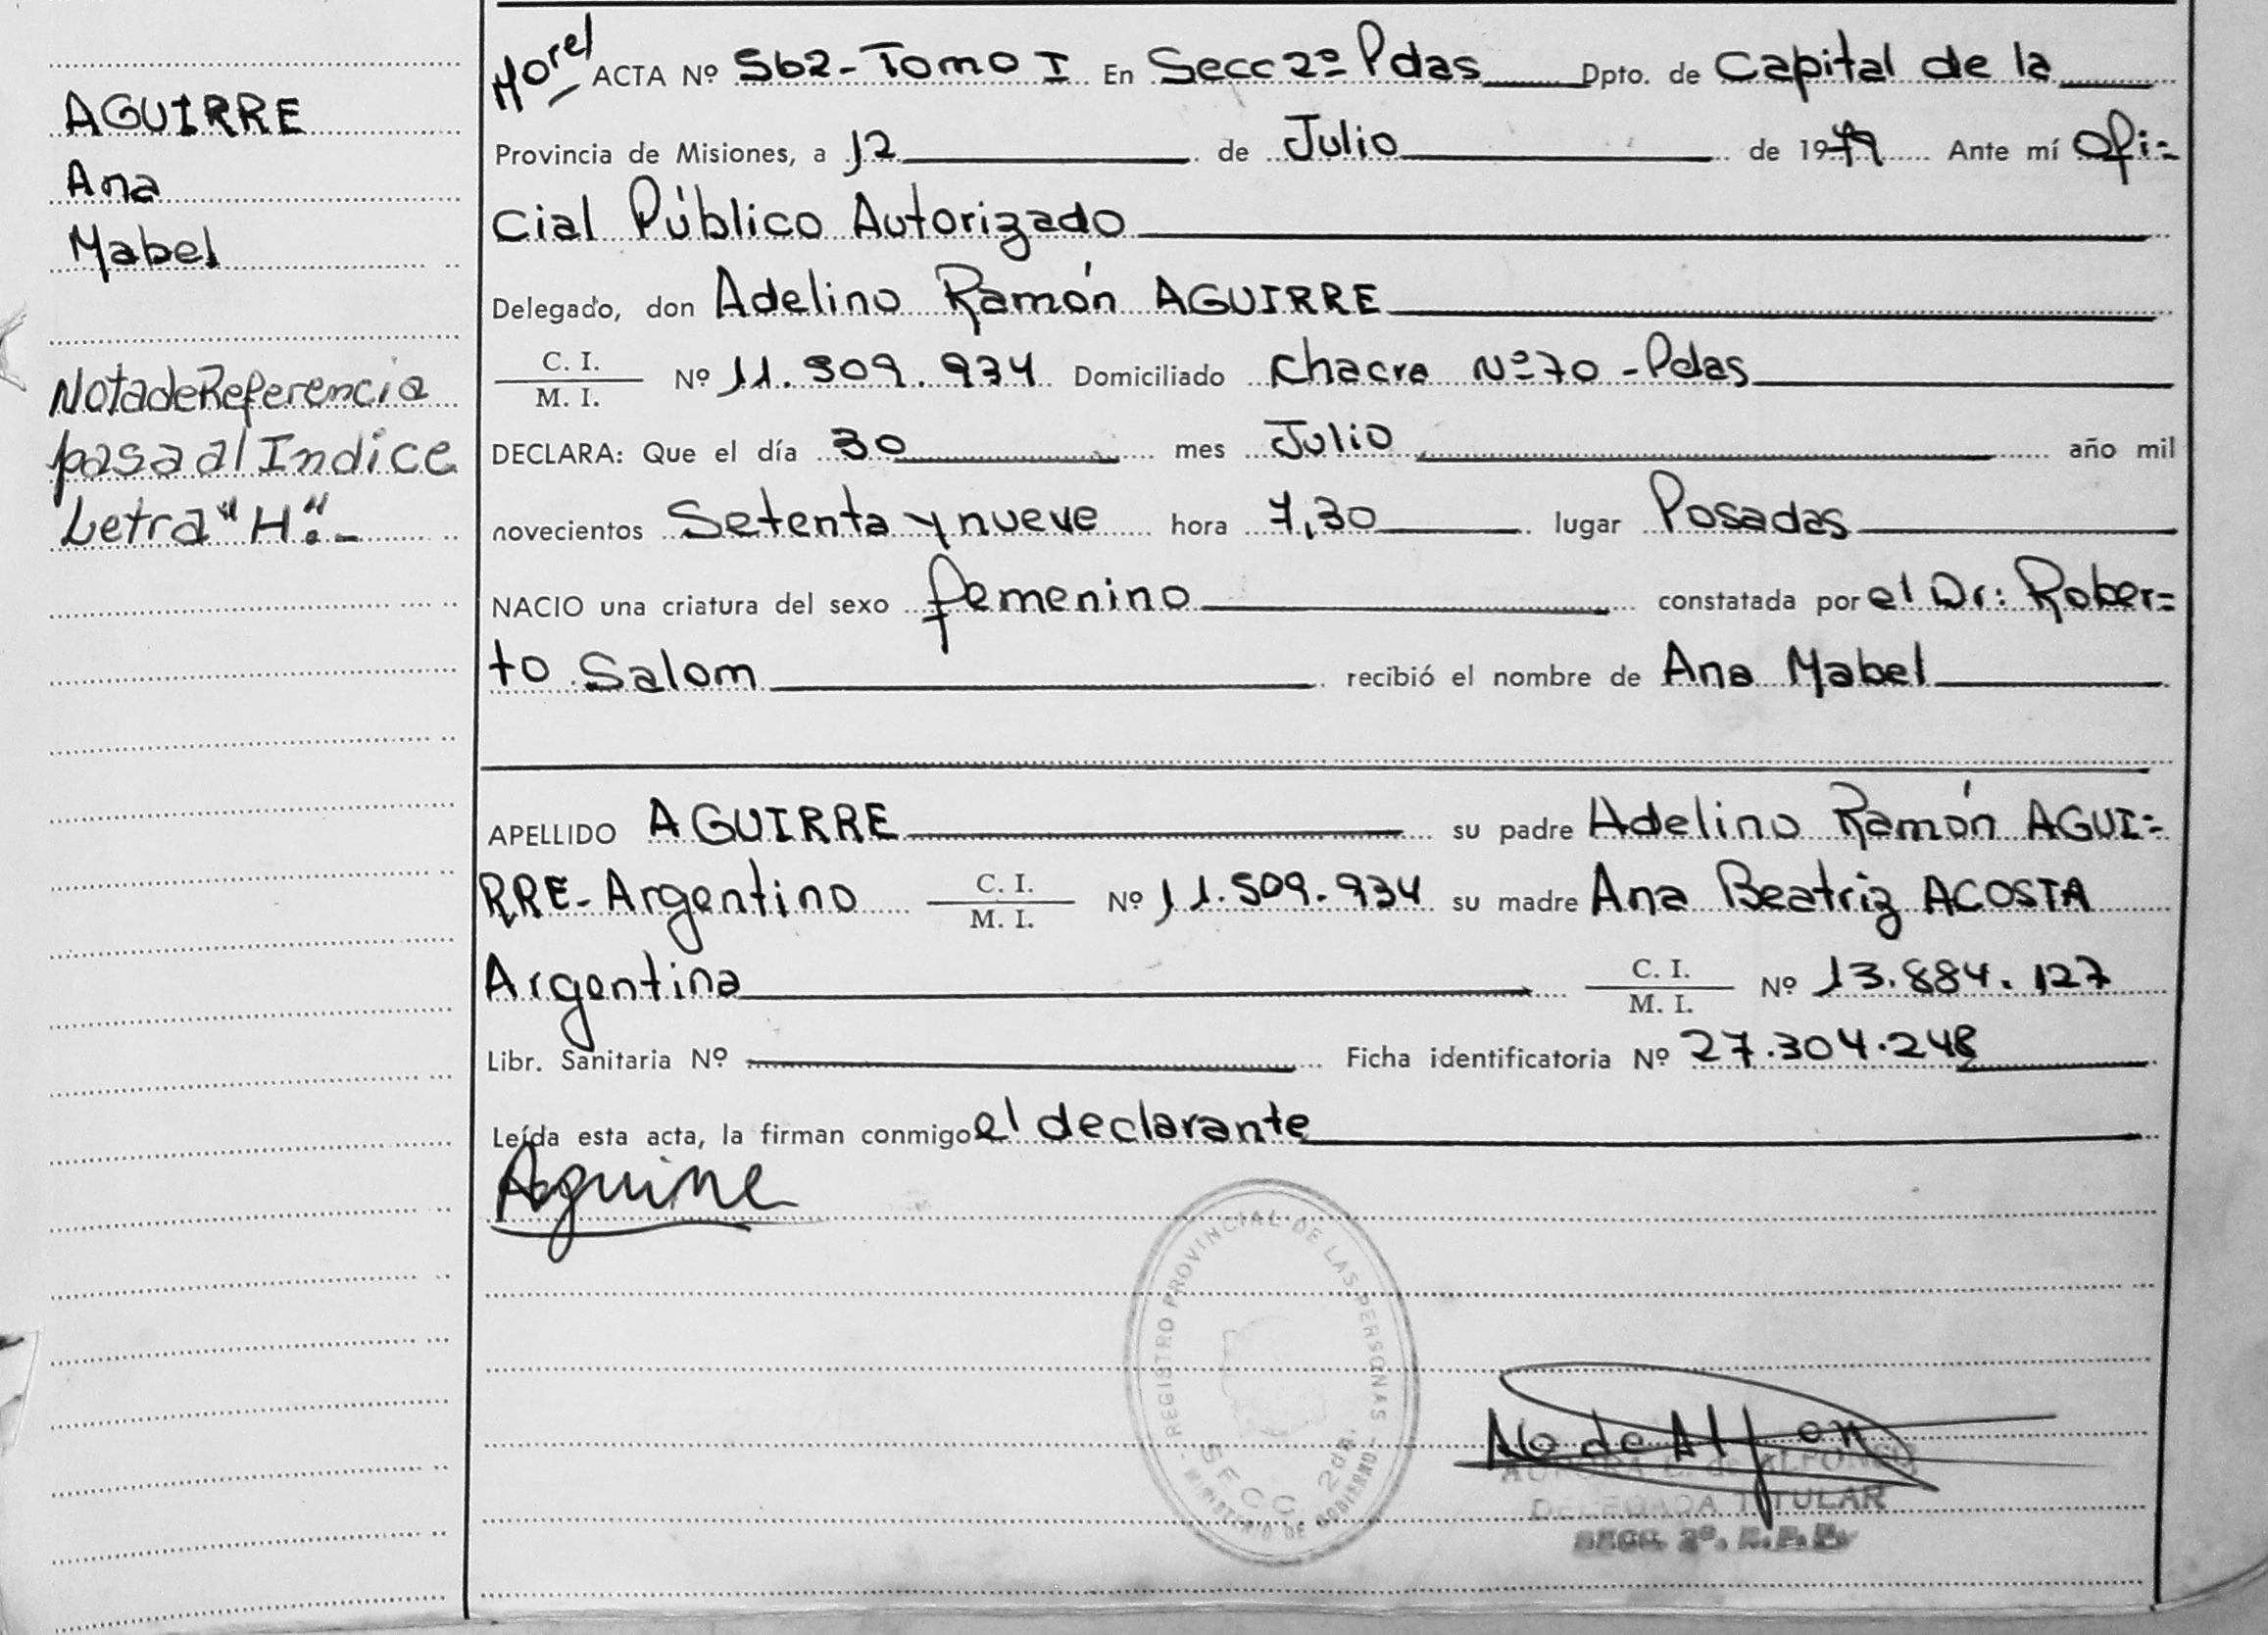 AGUIRRE
Ana
Mabel
Nota de Referencia
pasa al Indice
Letra "H".-
Morel ACTA Nº 562-Tomo I En Secc 2º Pdas Dpto. de Capital de la
Provincia de Misiones, a 12 de Julio de 1979 Ante mí Ofi-
cial Público Autorizado
Delegado, don Adelino Ramón AGUIRRE
C. I.
M. I. Nº 11.509.934 Domiciliado Chacra Nº 70 - Pdas
DECLARA: Que el día 30 mes Julio año mil
novecientos Setenta y nueve hora 7,30 lugar Posadas
NACIO una criatura del sexo femenino constatada por el Dr: Rober=
to Salom recibió el nombre de Ana Mabel
APELLIDO AGUIRRE su padre Adelino Ramón AGUI=
RRE- Argentino C. I.
M. I. Nº 11.509.934 su madre Ana Beatriz ACOSTA
Argentina C. I.
M. I. Nº 13.884.127
Libr. Sanitaria Nº Ficha identificatoria Nº 27.304.248
Leída esta acta, la firman conmigo el declarante
Aguirre
- REGISTRO PROVINCIAL DE LAS PERSONAS -
MINISTERIO DE GOBIERNO
SECC 2da.
AURORA C. de ALFONSO
DELEGADA TITULAR
SECC. 2º. R.P.P.